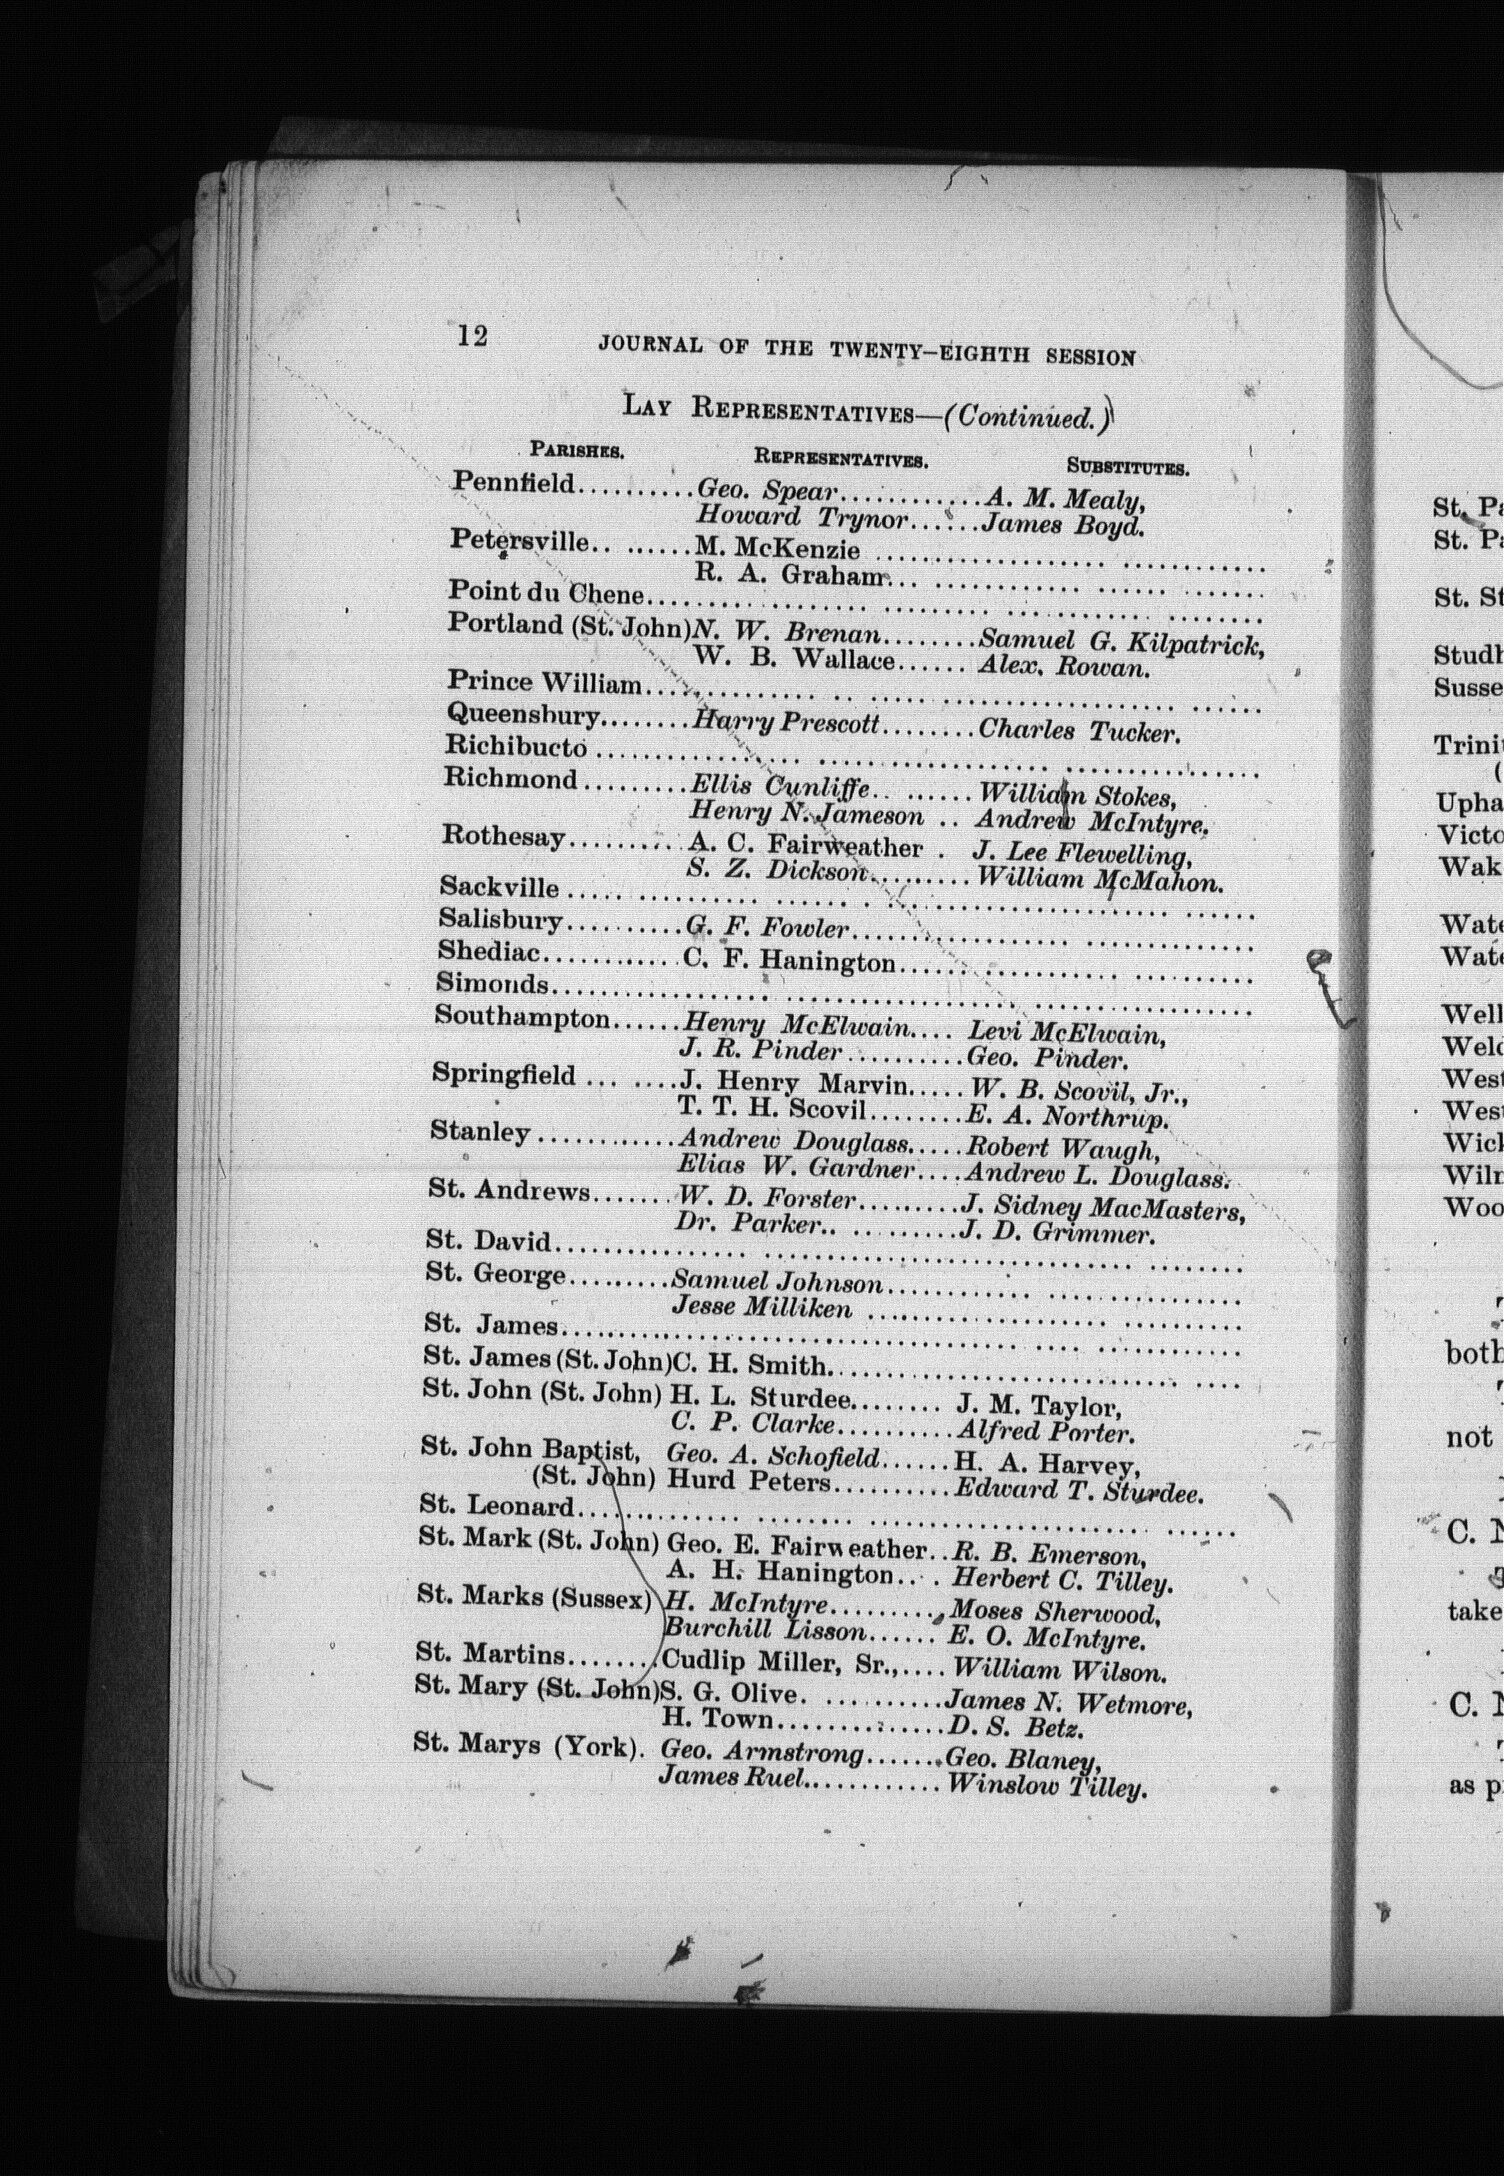 12 JOURNAL OF THE TWENTY-EIGHTH SESSION
LAY REPRESENTATIVES—(Continued.)
PARISHES. REPRESENTATIVES. SUBSTITUTES.
Pennfield..........Geo. Spear............A. M. Mealy,
Howard Trynor......James Boyd.
Petersville.. ......M. McKenzie ....................
R. A. Graham... ....................
Point du Chene........................................
Portland (St. John)N. W. Brenan........Samuel G. Kilpatrick,
W. B. Wallace...... Alex. Rowan.
Prince William........................................
Queensbury........Harry Prescott........Charles Tucker.
Richibucto ........................................
Richmond.........Ellis Cunliffe.. ......William Stokes,
Henry N. Jameson .. Andrew McIntyre.
Rothesay..........A. C. Fairweather . J. Lee Flewelling,
S. Z. Dickson.........William McMahon.
Sackville ........................................
Salisbury..........G. F. Fowler....................
Shediac............C. F. Hanington....................
Simonds........................................
Southampton......Henry McElwain.... Levi McElwain,
J. R. Pinder..........Geo. Pinder.
Springfield ... ....J. Henry Marvin..... W. B. Scovil, Jr.,
T. T. H. Scovil........E. A. Northrup.
Stanley............Andrew Douglass.....Robert Waugh,
Elias W. Gardner....Andrew L. Douglass.
St. Andrews.......W. D. Forster.........J. Sidney MacMasters,
Dr. Parker.. .......J. D. Grimmer.
St. David........................................
St. George.........Samuel Johnson....................
Jesse Milliken ....................
St. James........................................
St. James (St. John)C. H. Smith....................
St. John (St. John) H. L. Sturdee........ J. M. Taylor,
C. P. Clarke..........Alfred Porter.
St. John Baptist, Geo. A. Schofield......H. A. Harvey,
(St. John) Hurd Peters..........Edward T. Sturdee.
St. Leonard........................................
St. Mark (St. John) Geo. E. Fairweather..R. B. Emerson,
A. H. Hanington... . Herbert C. Tilley.
St. Marks (Sussex) H. McIntyre..........Moses Sherwood,
Burchill Lisson...... E. O. McIntyre.
St. Martins.......Cudlip Miller, Sr.,.... William Wilson.
St. Mary (St. John)S. G. Olive. ..........James N. Wetmore,
H. Town..............D. S. Betz.
St. Marys (York). Geo. Armstrong.......Geo. Blaney,
James Ruel............ Winslow Tilley.
St. Pa
St. Pa
St. St
Studh
Susse
Trinit
(
Upha
Victo
Wak
Wate
Wate
Well
Weld
West
West
Wick
Wilm
Woo
both
not
C. N
take
C. N
as p